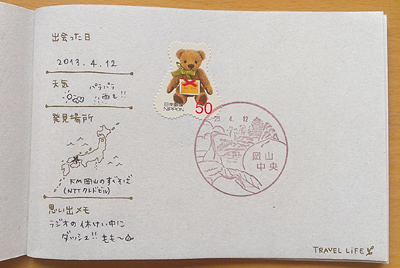 出会った日
2013.4.12
天気
パラパラ
雨も!!
発見場所
FM岡山のすぐそば
(NTTクレドビル)
思い出メモ
ラジオの休けい中に
ダッシュ!!
日本郵便
NIPPON
50
25.4.12
岡山
中央
TRAVEL LIFE